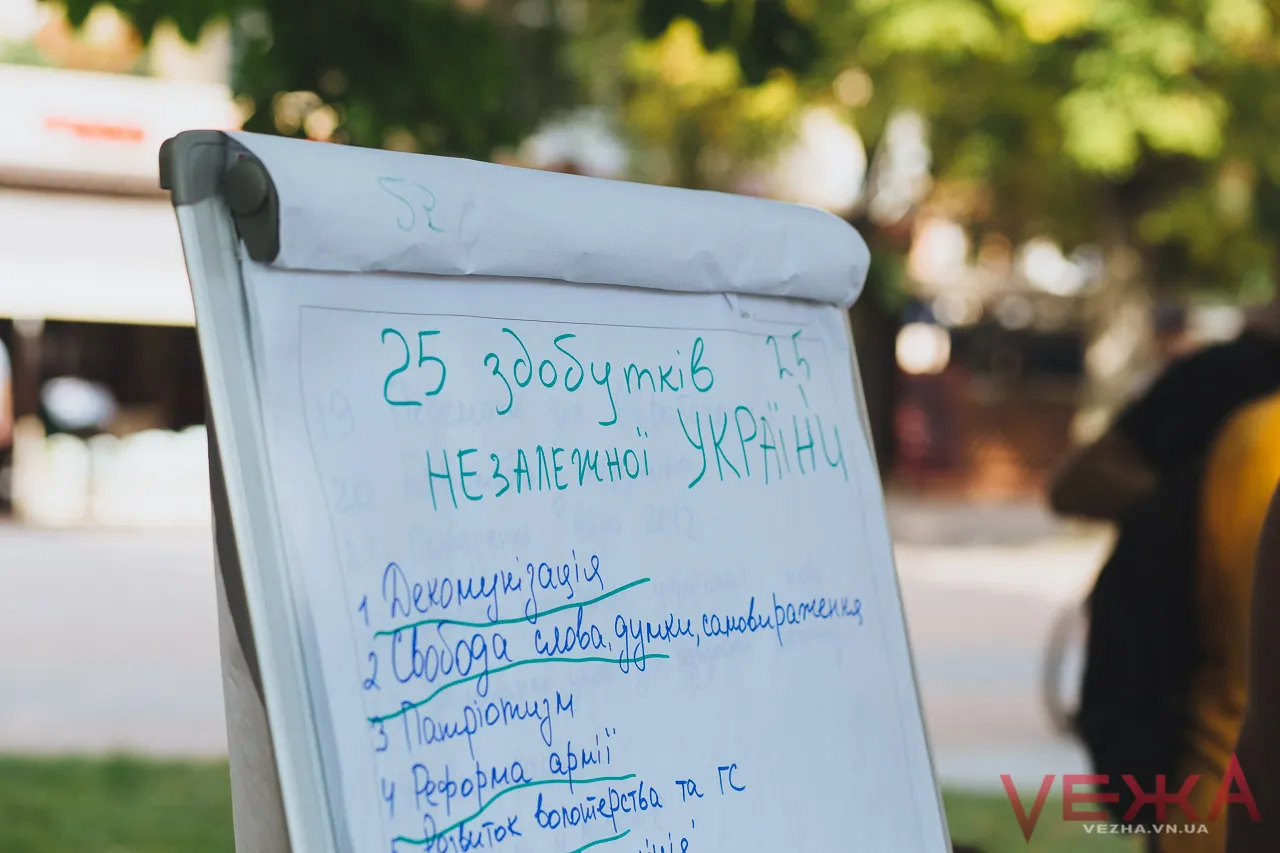 25 здобутків 25
НЕЗАЛЕЖНОЇ УКРАЇНИ
1 Декомунізація
2 Свобода слова, думки, самовираження
3 Патріотизм
4 Реформа армії
5 Розвиток волотерства та ГС
ВЕЖА
VEZHA.VN.UA